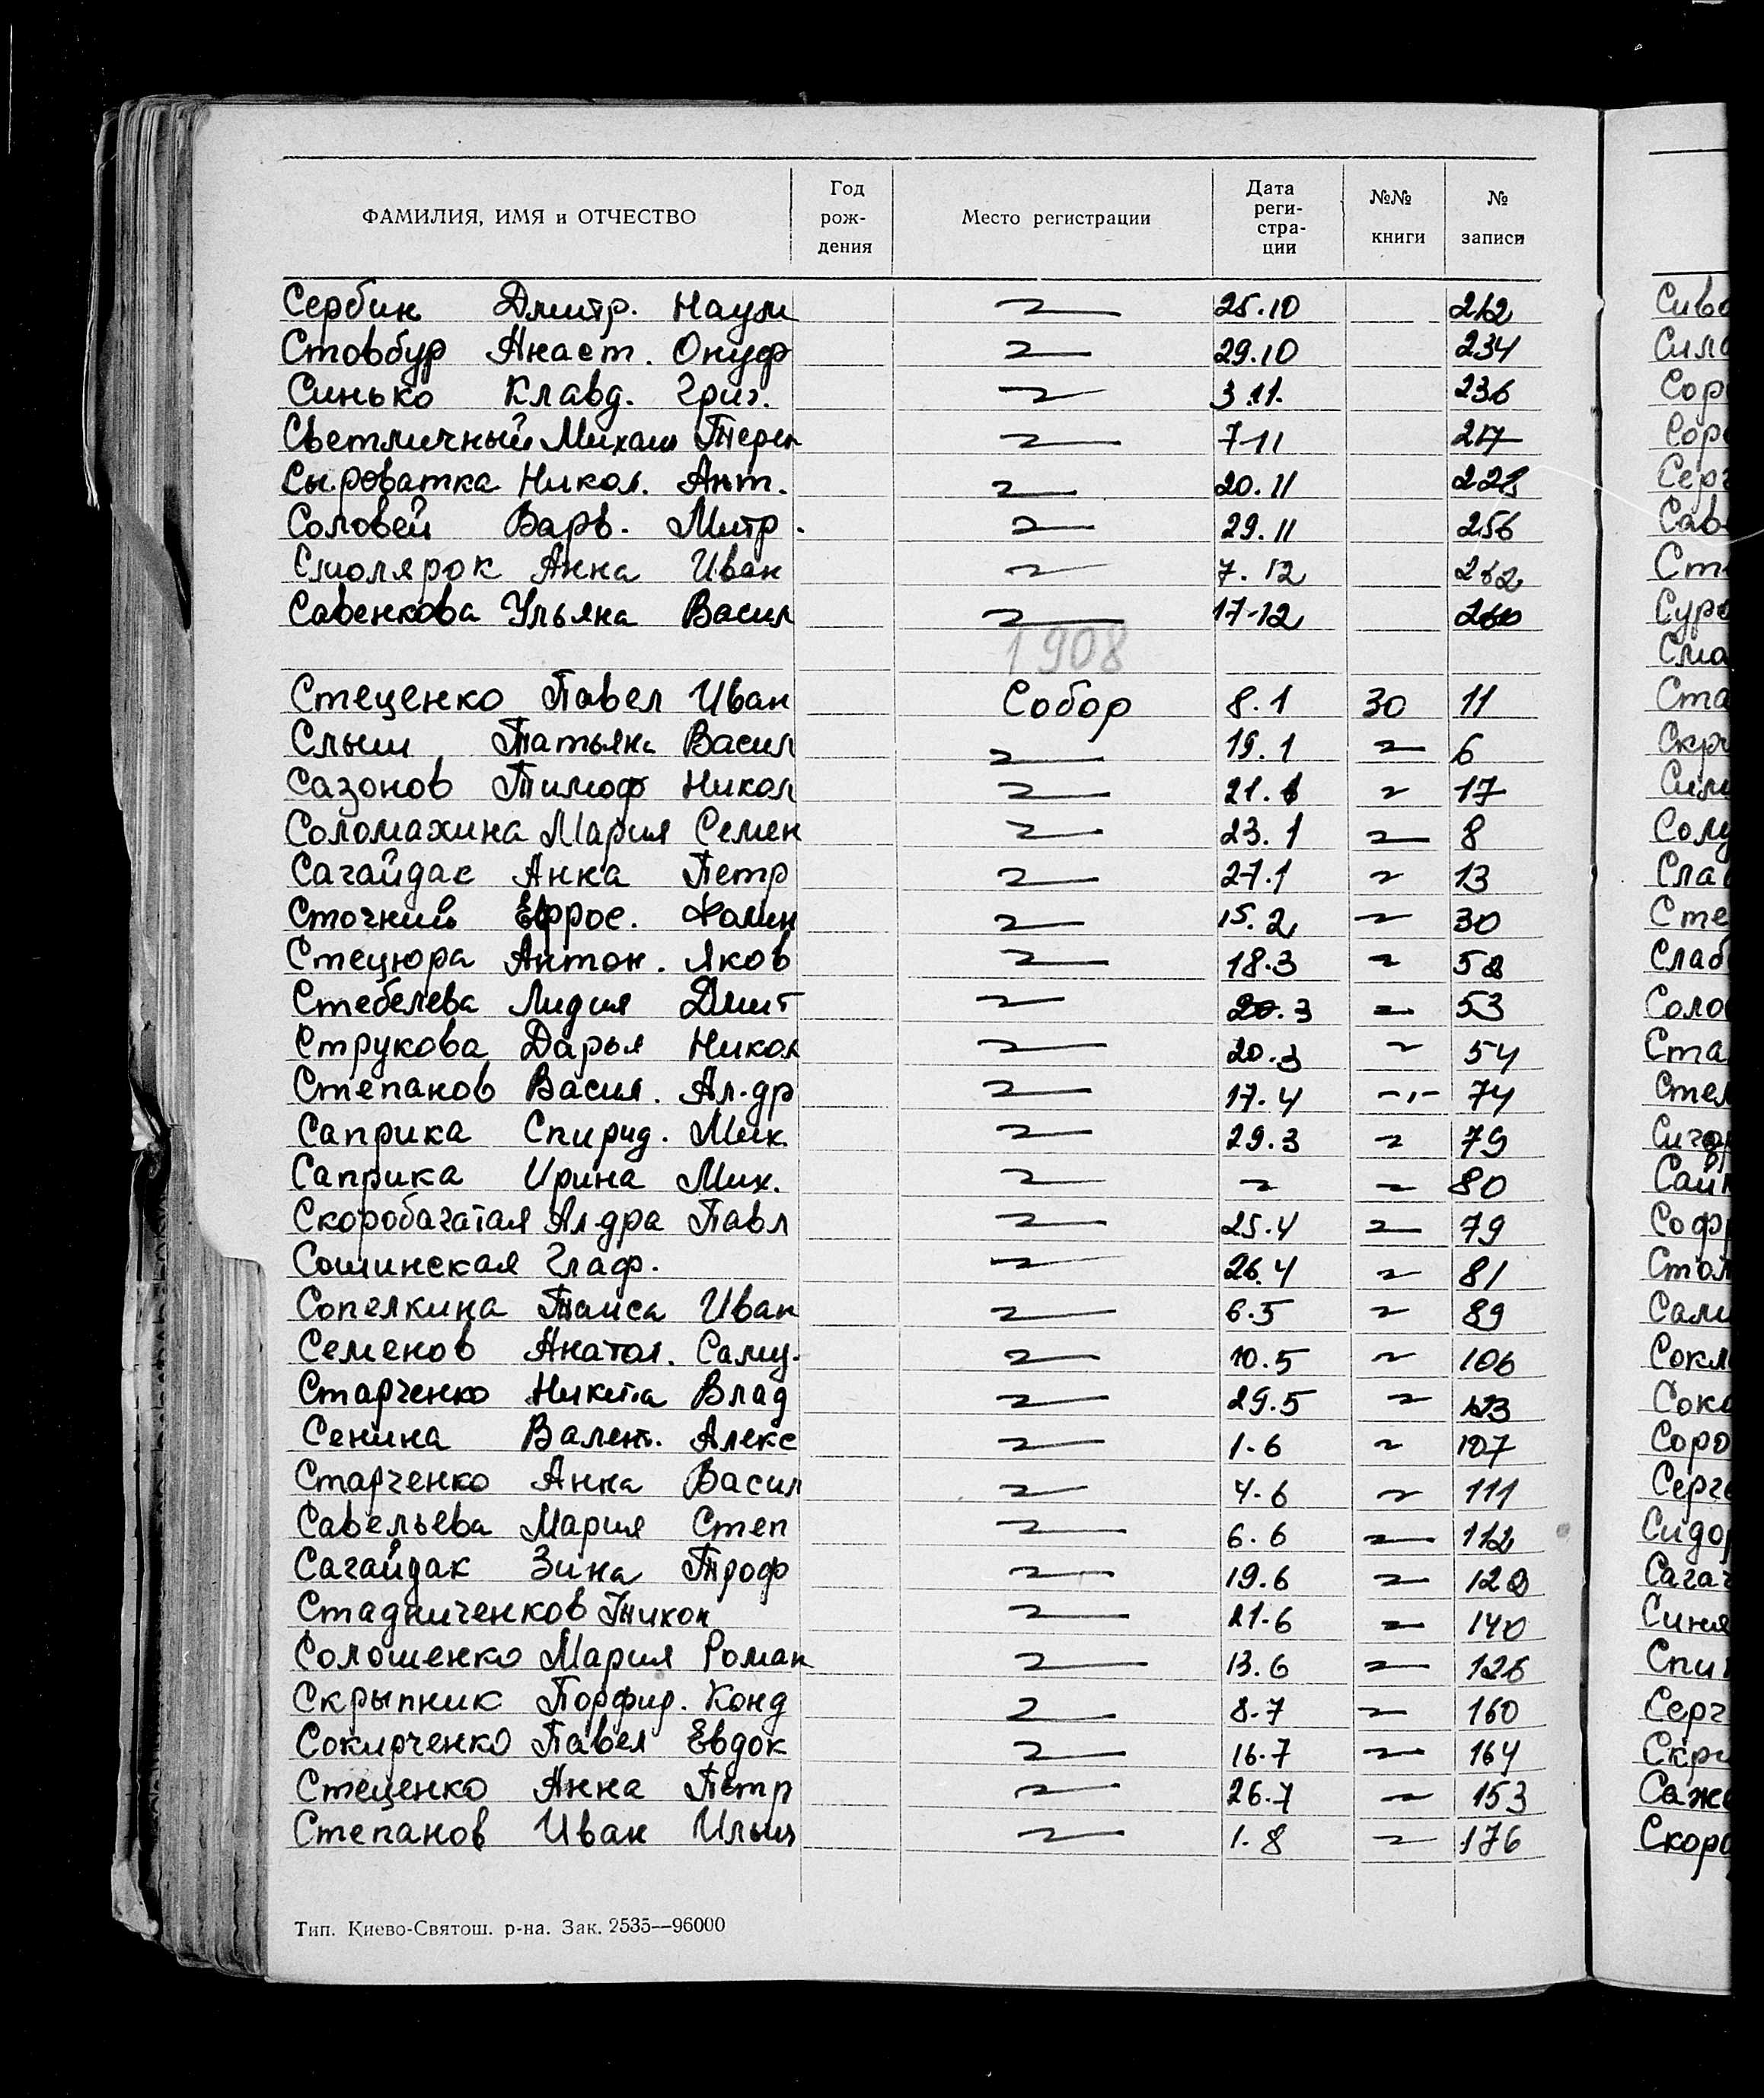 ФАМИЛИЯ, ИМЯ и ОТЧЕСТВО | Год рож- дения | Место регистрации | Дата реги- стра- ции | №№ книги | № записи
Сербин Дмитр. Наум 25.10
Стовбур Анаст. Онуф 29.10 234
Синько Клавд. Григ. 3.11. 236
Светличный Михаил Терен 7-11 217
Сыроватка Никол. Ант. 20.11
Соловей Варв. Митр. 29.11 256
Смолярок Анна Иван 7.12
Савенкова Ульяна Васил 17-12
1908
Стеценко Павел Иван Собор 8.1 30 11
Слыш Татьяна Васил 19.1 6
Сазонов Тимоф Никол 21.1 17
Соломахина Мария Семен 23.1 8
Сагайдак Анна Петр 27.1 13
Сточний Ефрос. Фомин 15.2 30
Стецюра Антон. Яков 18.3 52
Стебелева Лидия Дмит 20.3 53
Струкова Дарья Никол 20.3 54
Степанов Васил. Ал-др 17.4 -"- 74
Саприка Спирид. Мих. 29.3 79
Саприка Ирина Мих. 80
Скоробагатая Ал-дра Павл 25.4 79
Сошинская Глаф. 26.4 81
Сопелкина Таиса Иван 6.5 89
Семенов Анатол. Саму. 10.5 106
Старченко Никита Влад 29.5 123
Сенина Вален. Алекс 1-6 107
Старченко Анна Васил 4-6 111
Савельева Мария Степ 6.6 112
Сагайдак Зина Троф 19.6 122
Стадниченков Тихон 21-6 140
Солошенко Мария Роман 13.6 126
Скрыпник Порфир. Конд 8-7 160
Сокирченко Павел Евдок 16.7 164
Стеценко Анна Петр 26.7 153
Степанов Иван Ильич 1.8 176
Тип. Киево-Святош. р-на. Зак. 2535—96000